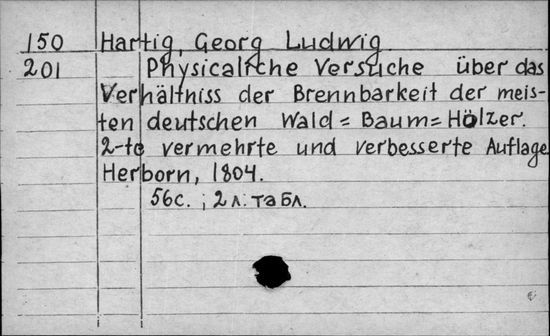 150 Hartig, Georg Ludwig
201 Physicalische Versuche über das
Verhältniss der Brennbarkeit der meis-
ten deutschen Wald=Baum=Hölzer.
2-te vermehrte und verbesserte Auflage
Herborn, 1804.
56с. ; 2 л. табл.